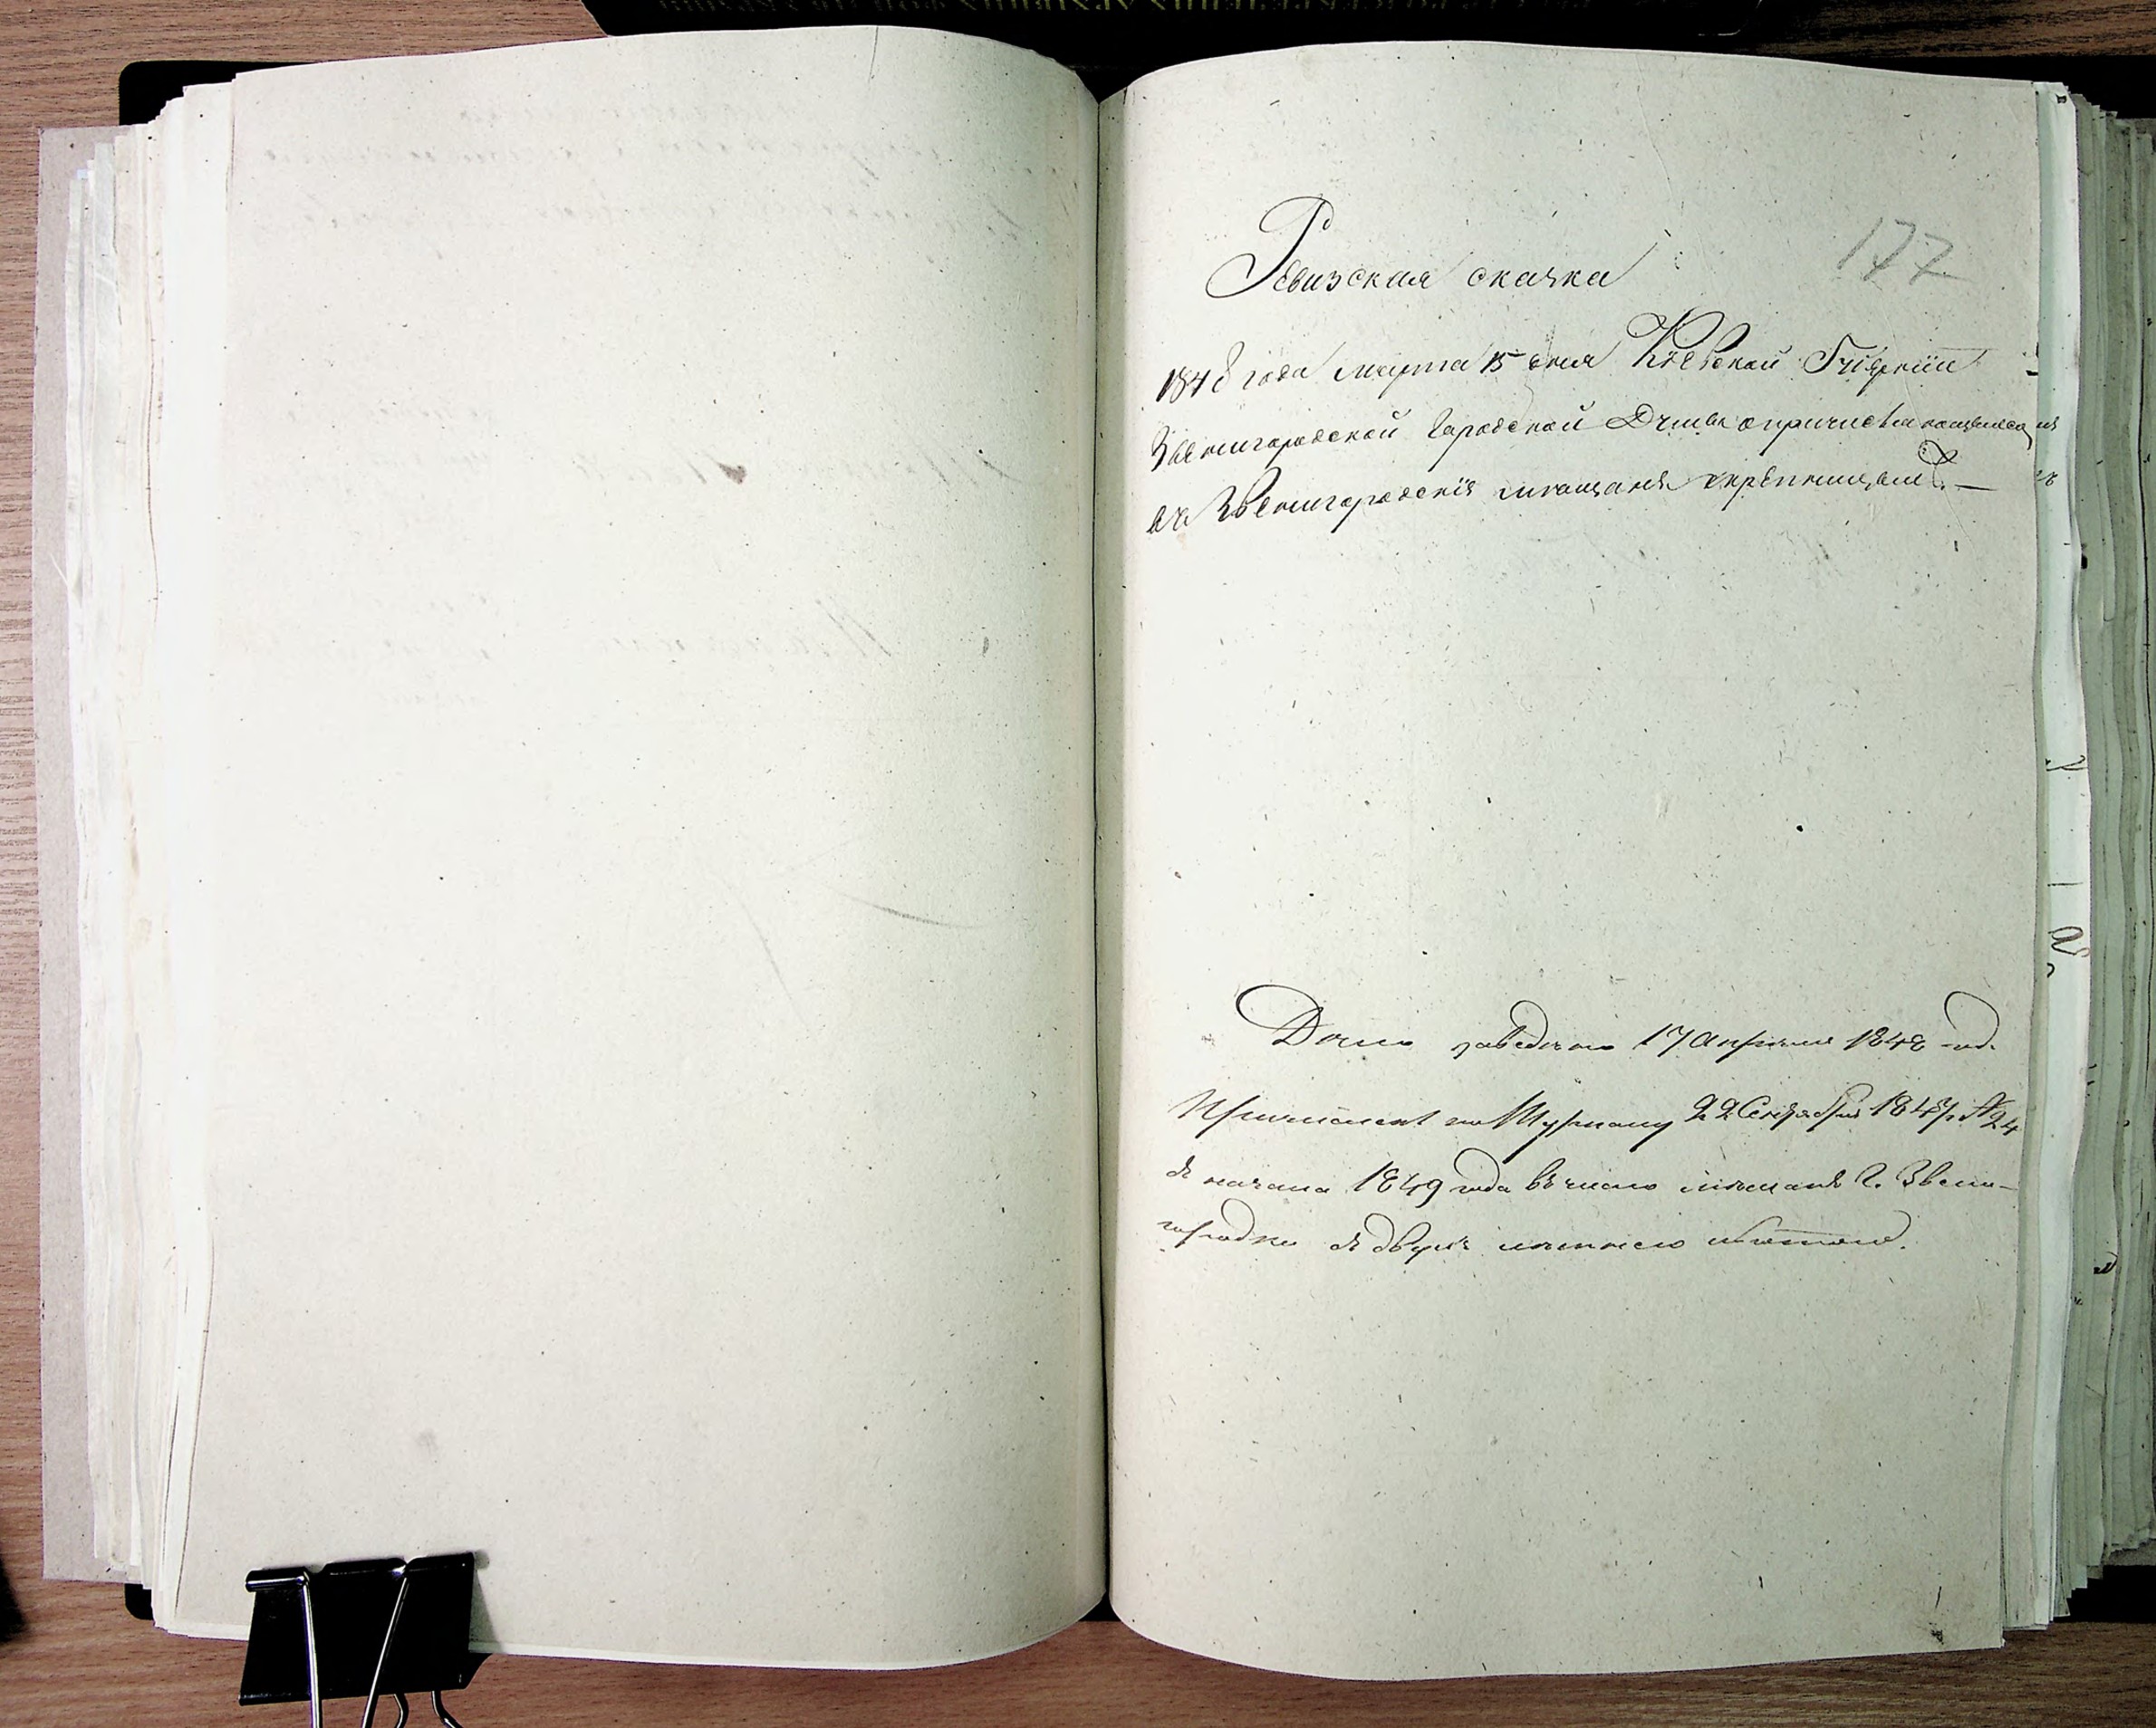 177
Ревизская сказка
1848 года марта 15 дня Кіевской Губерніи
Звенигородской Городской Думы о причисляющемся
въ Звенигородскіе мѣщане
Дѣло заведено 17 Апрѣля 1848 год.
Причисленъ по Журналу 22 Сентября 1848 г. № 24
съ начала 1849 года въ число мѣщанъ г. Звени-
городки съ двух